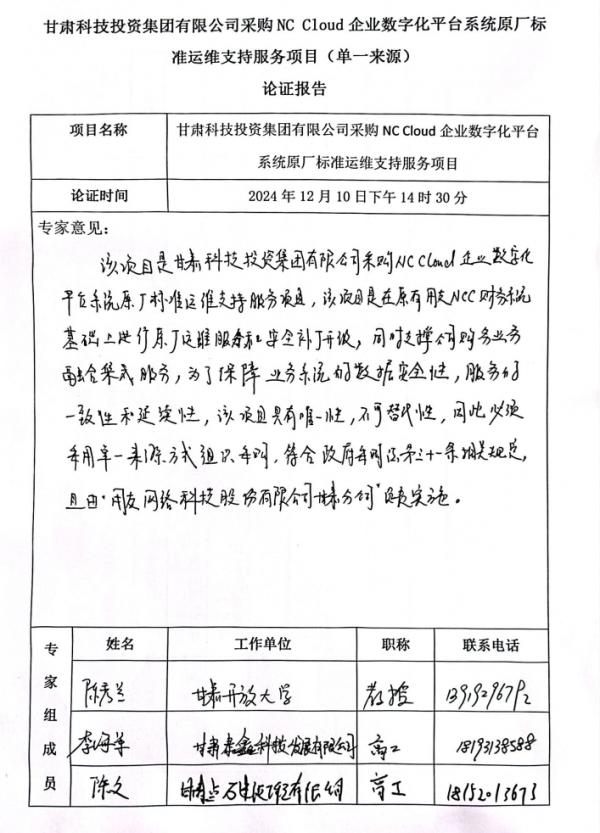 甘肃科技投资集团有限公司采购 NC Cloud 企业数字化平台系统原厂标
准运维支持服务项目（单一来源）
论证报告
项目名称
甘肃科技投资集团有限公司采购 NC Cloud 企业数字化平台
系统原厂标准运维支持服务项目
论证时间
2024 年 12 月 10 日下午 14 时 30 分
专家意见：
该项目是甘肃科技投资集团有限公司采购NC Cloud 企业数字化
平台系统原厂标准运维支持服务项目，该项目是在原有用友NCC财务系统
基础上进行原厂运维服务和安全补丁升级，同时支撑公司购务业务
融合集成服务，为了保障业务系统的数据安全性，服务的
一致性和延续性，该项目具有唯一性，不可替代性，因此必须
采用单一来源方式组织采购，符合政府采购法第三十一条相关规定，
且由“用友网络科技股份有限公司甘肃分公司”负责实施。
专家组成员
姓名 工作单位 职称 联系电话
陈秀兰 甘肃开放大学 教授
李海军 甘肃 鑫科技发展有限公司 高工 18193138588
陈文 甘肃 有限公司 高工 18152013673